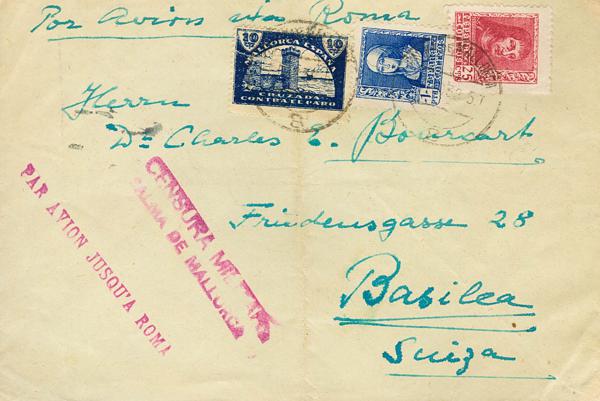 Por Avion via Roma
10 10
MALLORCA ESPAÑA
CRUZADA
CONTRA EL PARO
1
25
Herrn
Dr Charles E. Bourcart
CENSURA MILITAR
PALMA DE MALLORCA
PAR AVION JUSQU'A ROMA
Friedensgasse 28
Basilea
Suiza